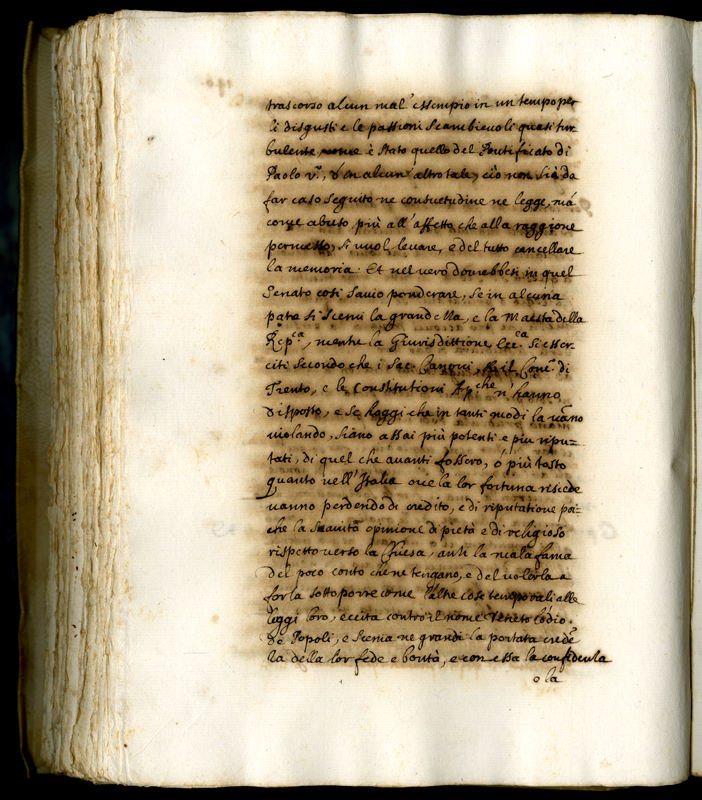 trascorso alcun mal' essempio in un tempo per
li disgusti e le passioni scambievoli quasi tur
bulente, come è stato quello del Pontificato di
Paolo V.º, ò in alcun' altro tale, ciò non si è da
far caso seguito ne consuetudine ne legge, mà
come abuso più all' affetto che alla raggione
permesso, si vuol levare, e del tutto cancellare
la memoria. Et nel vero dovrebbesi in quel
Senato così savio ponderare, se in alcuna
parte si scemi la grandella, e la Maestà della
Rep.ca, mentre la Giurisdittione Ecc.ca si esser-
citi secondo che i Sac. Canoni, il Conc. di
Trento, e le Constitutioni Ap.che n' hanno
disposto, e se hoggi che in tanti modi la vãno
violando, siano assai più potenti e più ripu-
tati, di quel che avanti fossero, ò più tosto
quanto nell' Italia ove la lor fortuna risiede
vanno perdendo di credito, e di riputatione poi-
che la opinione di pietà e di religioso
rispetto verso la Chiesa, anzi la mala fama
del poco conto che ne tengano, e del volerla a
forza sottoporre come l'altre cose temporali alle
leggi loro, eccita contro il nome Veneto l'odio
de Popoli, e scema ne grandi la portata credẽ
la della lor fede e bontà, e con essa la confidenla
e la